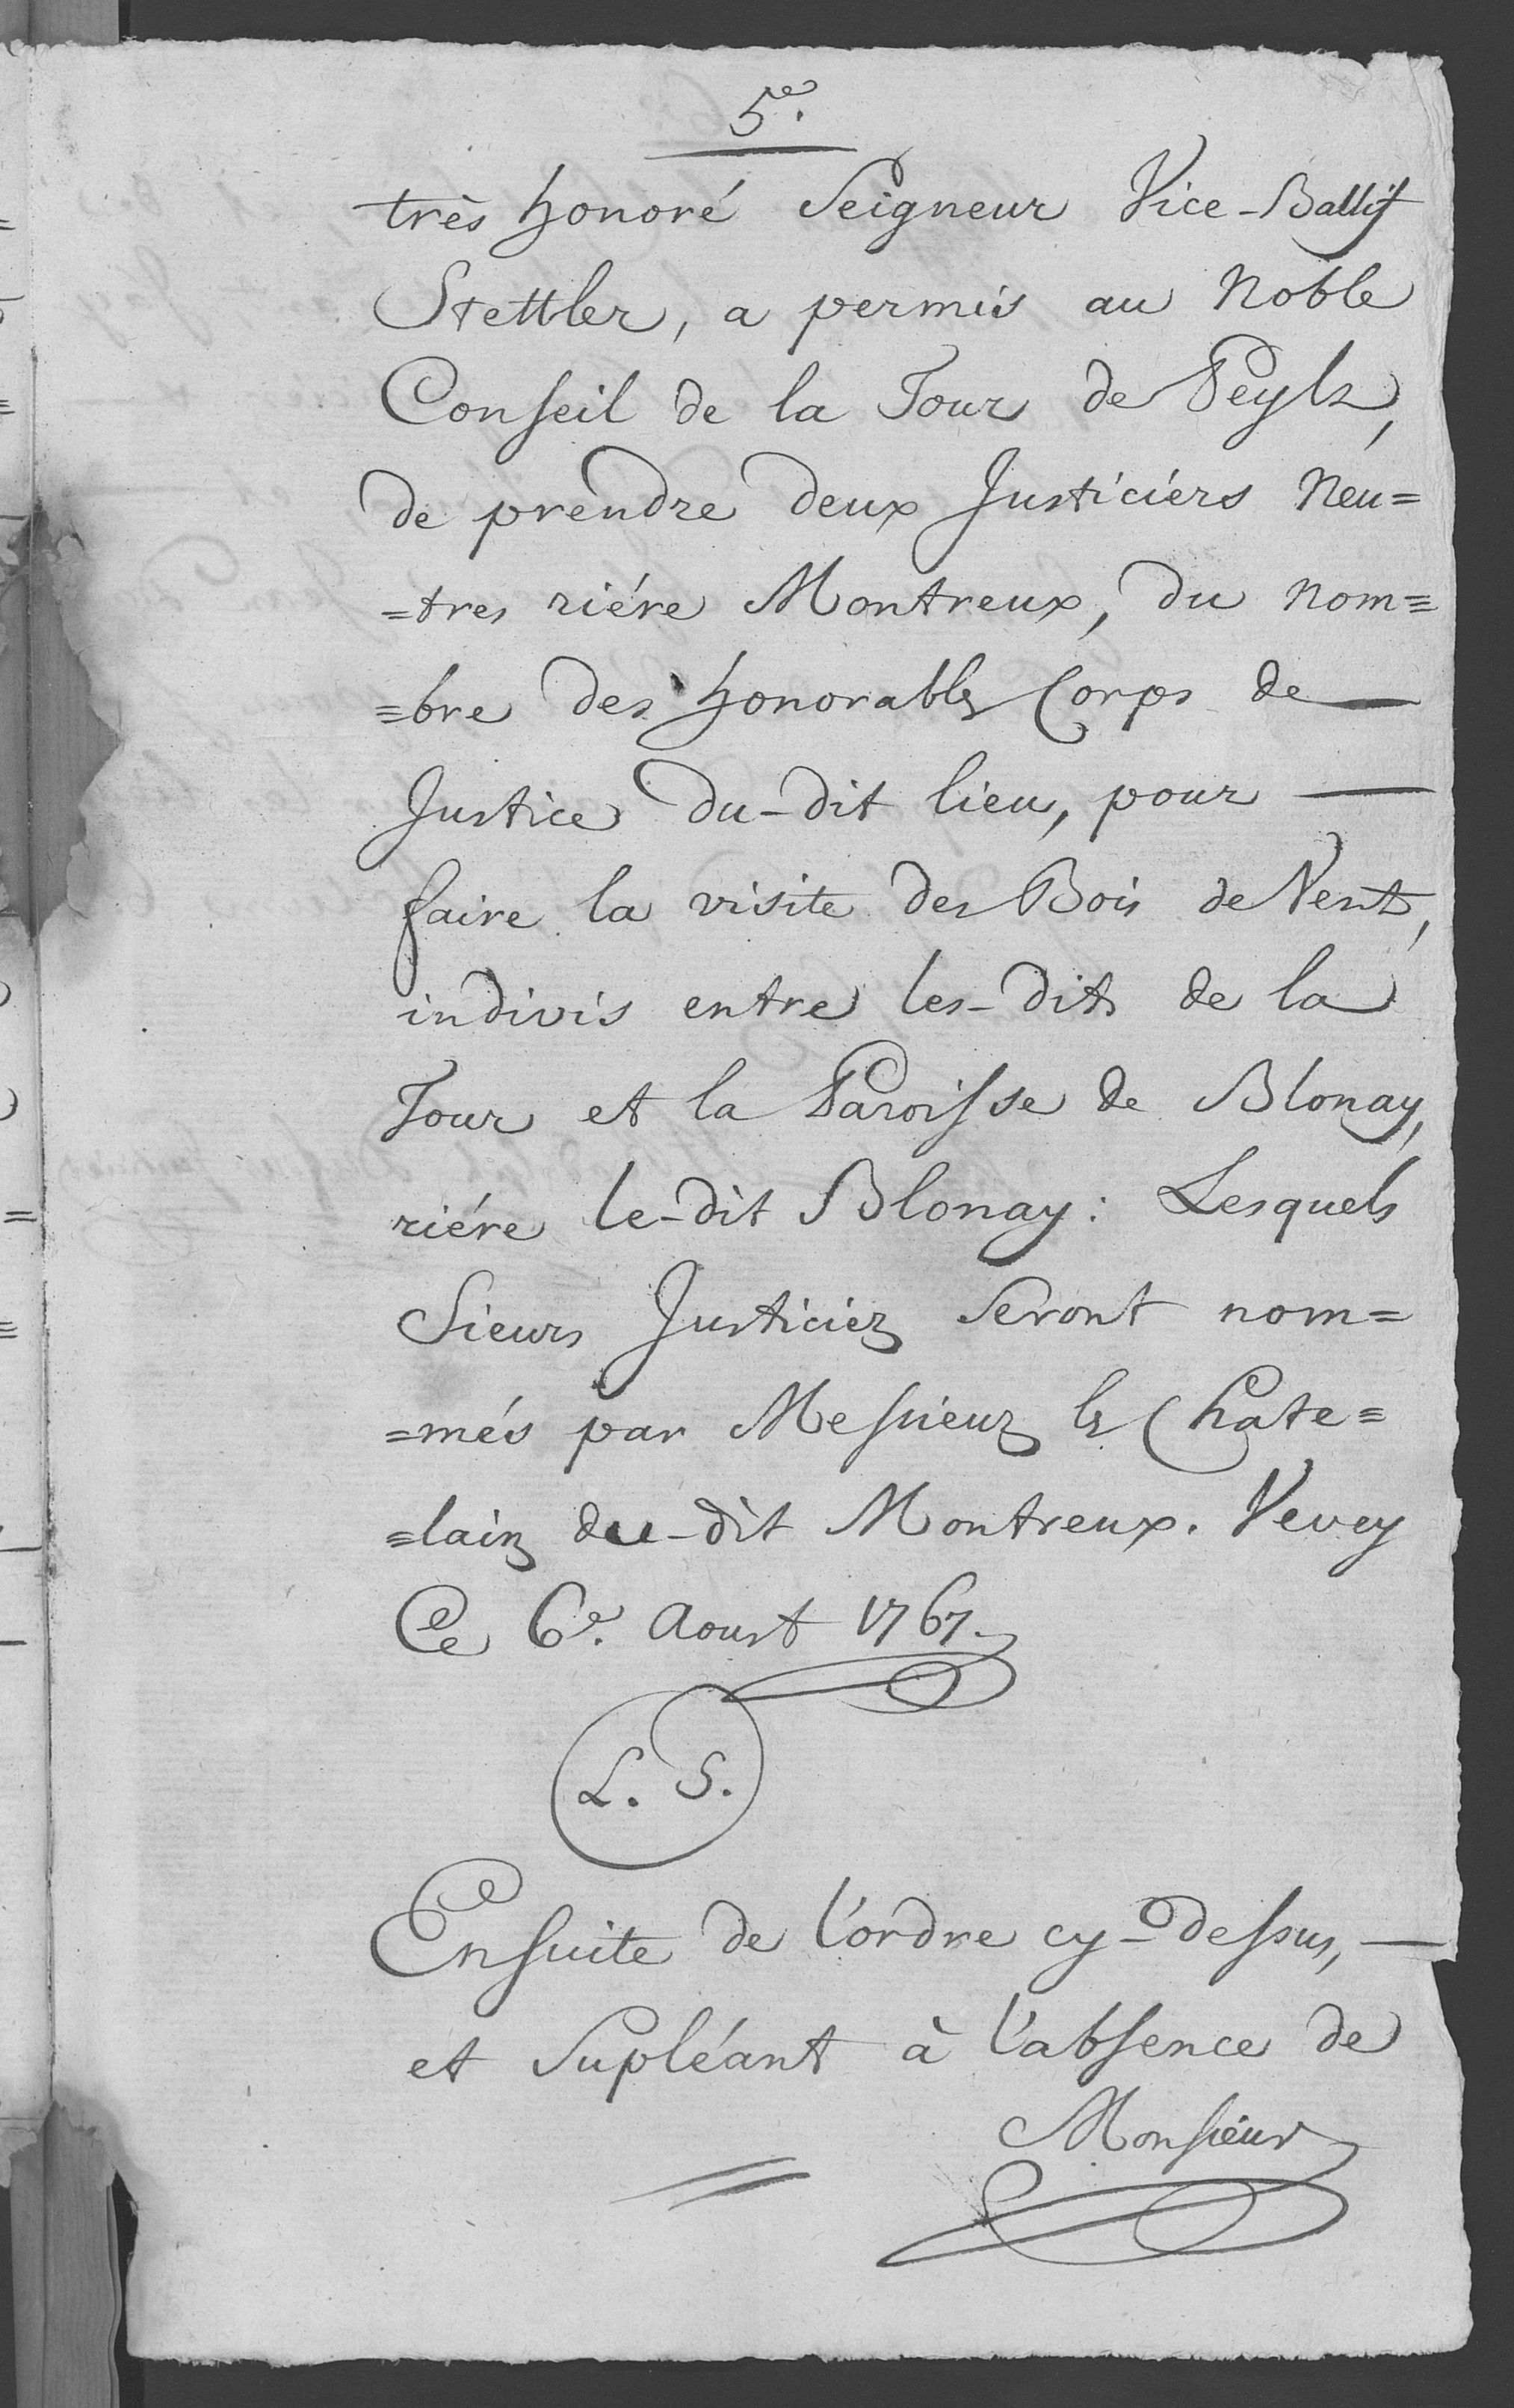 5e.
très honoré Seigneur Vice-Ballif
Stettler, a permis au Noble
Conseil de la Tour de Peylz,
de prendre deux Justiciers Neu=
=tres riére Montreux, du nom=
=bre des honorables Corps de —
Justice du-dit lieu, pour —
faire la visite des Bois de Vent,
indivis entre les-dits de la
Tour et la Paroisse de Blonay,
riére le-dit Blonay: Lesquels
Sieurs Justiciers seront nom=
=més par Messieurs les Chate=
=lains du-dit Montreux. Vevey
Ce 6e. Aoust 1767.
L. S.
Ensuite de l'ordre cy-dessus, —
et Supléant à l'absence de
Monsieur